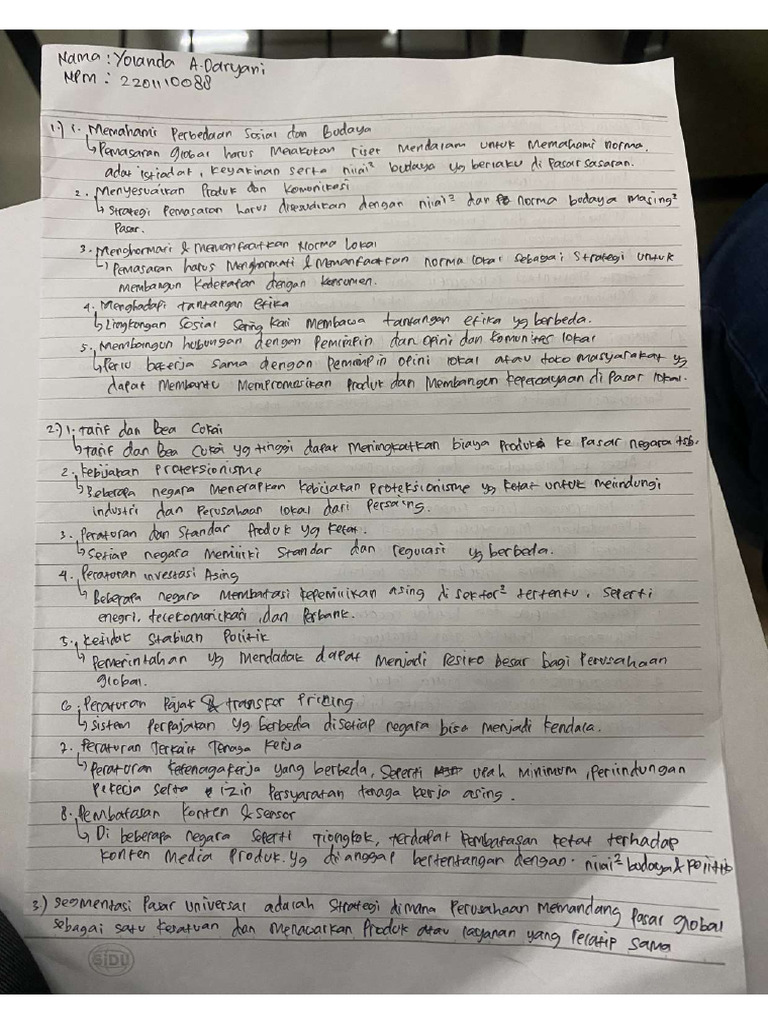 Nama : Yolanda A. Daryani
NPM : 2201110088
1.) 1. Memahami Perbedaan Sosial dan Budaya
↳ Pemasaran global harus Melakukan riset Mendalam untuk Memahami norma,
adat istiadat, keyakinan serta nilai² budaya yg berlaku di Pasar sasaran.
2. Menyesuaikan Produk dan Komunikasi
↳ Strategi Pemasaran harus disesuaikan dengan nilai² dan norma budaya masing²
Pasar.
3. Menghormati & Memanfaatkan Norma Lokal
↳ Pemasaran harus Menghormati & Memanfaatkan norma lokal sebagai Strategi untuk
Membangun Kedekatan dengan Konsumen.
4. Menghadapi tantangan etika
↳ Lingkungan Sosial Sering kali Membawa tantangan etika yg berbeda.
5. Membangun hubungan dengan Pemimpin dan opini dan komunitas lokal
↳ Perlu bekerja sama dengan pemimpin opini lokal atau toko masyarakat yg
dapat Membantu Mempromosikan Produk dan Membangun kepercayaan di Pasar lokal.
2.) 1. Tarif dan Bea Cukai
↳ tarif dan Bea Cukai yg tinggi dapat Meningkatkan biaya Produk ke Pasar negara tsb.
2. Kebijakan Proteksionisme
↳ Beberapa negara Menerapkan Kebijakan Proteksionisme yg ketat untuk melindungi
industri dan Perusahaan lokal dari Persaing.
3. Peraturan dan Standar Produk yg ketat.
↳ Setiap negara memiliki Standar dan regulasi yg berbeda.
4. Peraturan investasi Asing
↳ Beberapa negara Membatasi kepemilikan asing di sektor² tertentu, seperti
enegri, telekomonikasi, dan Perbank.
5. Ketidak Stabilan Politik
↳ Pemerintahan yg Mendadak dapat Menjadi resiko besar bagi Perusahaan
global.
6. Peraturan Pajak & transfer Pricing
↳ Sistem Perpajakan yg berbeda disetiap negara bisa menjadi kendala.
7. Peraturan Terkait Tenaga Kerja
↳ Peraturan Ketenagakerja yang berbeda, Seperti upah minimum, Perlindungan
Pekerja serta izin Persyaratan tenaga kerja asing.
8. Pembatasan Konten & Sensor
↳ Di beberapa negara seperti Tiongkok, terdapat Pembatasan ketat terhadap
konten Media Produk. yg dianggap bertentangan dengan nilai² budaya & Politik
3.) Segmentasi Pasar Universal adalah Strategi dimana Perusahaan Memandang Pasar global
sebagai satu kesatuan dan menawarkan Produk atau layanan yang relatip sama
SIDU